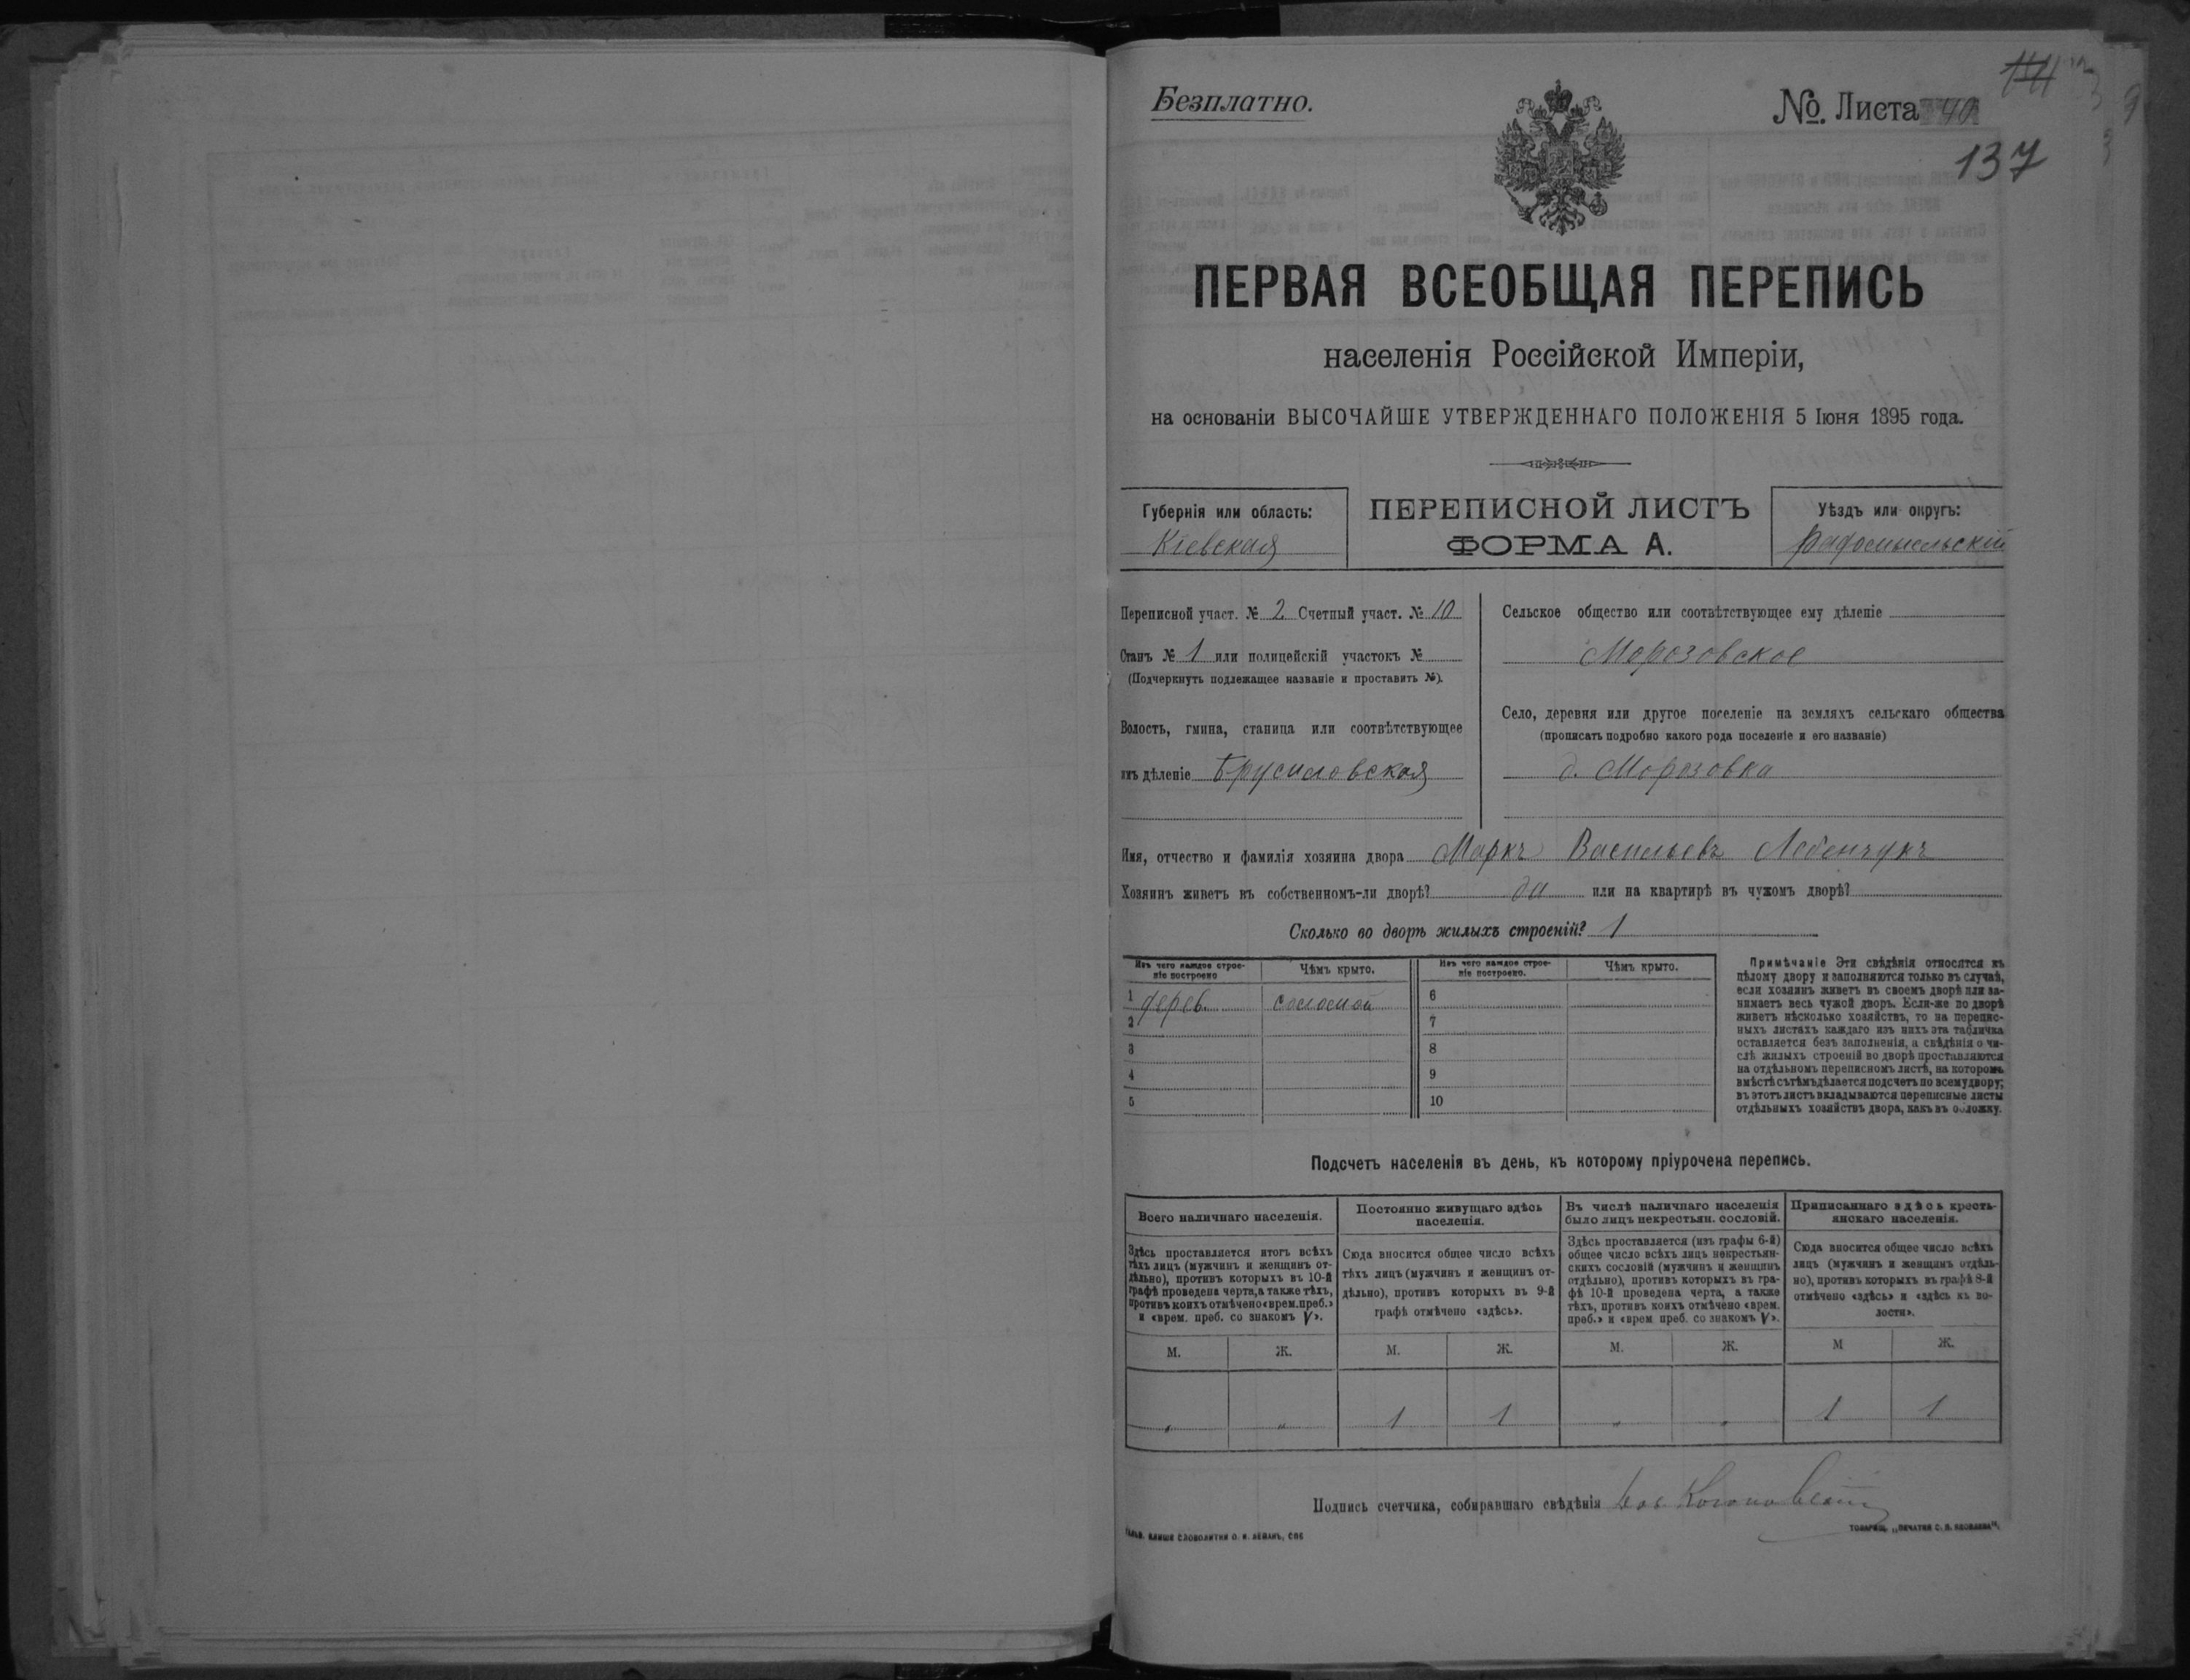 Безплатно.
№. Листа 40
137
ПЕРВАЯ ВСЕОБЩАЯ ПЕРЕПИСЬ
населенія Россійской Имперіи,
на основаніи ВЫСОЧАЙШЕ УТВЕРЖДЕННАГО ПОЛОЖЕНІЯ 5 Іюня 1895 года.
Губернія или область:
Кіевская
ПЕРЕПИСНОЙ ЛИСТЪ
ФОРМА А.
Уѣздъ или округъ:
Радомысльскій
Переписной участ. № 2 Счетный участ. № 10
Станъ № 1 или полицейскій участокъ №
(Подчеркнуть подлежащее названіе и проставить №).
Волость, гмина, станица или соотвѣтствующее
имъ дѣленіе Брусиловская
Сельское общество или соотвѣтствующее ему дѣленіе
Морозовское
Село, деревня или другое поселеніе на земляхъ сельскаго общества
(прописать подробно какого рода поселеніе и его названіе)
д. Морозовка
Имя, отчество и фамилія хозяина двора Маркъ Васильевъ
Хозяинъ живетъ въ собственномъ-ли дворѣ? да или на квартирѣ въ чужомъ дворѣ?
Сколько во дворѣ жилыхъ строеній? 1
Изъ чего каждое строе-
ніе построено
Чѣмъ крыто.
Изъ чего каждое строе-
ніе построено.
Чѣмъ крыто.
1 дерев. соломой
2
3
4
5
6
7
8
9
10
Примѣчаніе Эти свѣдѣнія относятся къ
цѣлому двору и заполняются только въ случаѣ,
если хозяинъ живетъ въ своемъ дворѣ или за-
нимаетъ весь чужой дворъ. Если-же во дворѣ
живетъ нѣсколько хозяйствъ, то на перепис-
ныхъ листахъ каждаго изъ нихъ эта табличка
оставляется безъ заполненія, а свѣдѣнія о чи-
слѣ жилыхъ строеній во дворѣ проставляются
на отдѣльномъ переписномъ листѣ, на которомъ
вмѣстѣ съ тѣмъ дѣлается подсчетъ по всему двору;
въ этотъ листъ вкладываются переписные листы
отдѣльныхъ хозяйствъ двора, какъ въ обложку.
Подсчетъ населенія въ день, къ которому пріурочена перепись.
Всего наличнаго населенія.
Здѣсь проставляется итогъ всѣхъ
тѣхъ лицъ (мужчинъ и женщинъ от-
дѣльно), противъ которыхъ въ 10-й
графѣ проведена черта, а также тѣхъ,
противъ коихъ отмѣчено «врем. преб.»
и «врем. преб. со знакомъ V».
Постоянно живущаго здѣсь
населенія.
Сюда вносится общее число всѣхъ
тѣхъ лицъ (мужчинъ и женщинъ от-
дѣльно), противъ которыхъ въ 9-й
графѣ отмѣчено «здѣсь».
Въ числѣ наличнаго населенія
было лицъ некрестьян. сословій.
Здѣсь проставляется (изъ графы 6-й)
общее число всѣхъ лицъ некрестьян-
скихъ сословій (мужчинъ и женщинъ
отдѣльно), противъ которыхъ въ гра-
фѣ 10-й проведена черта, а также
тѣхъ, противъ коихъ отмѣчено «врем.
преб.» и «врем преб. со знакомъ V».
Приписаннаго здѣсь кресть-
янскаго населенія.
Сюда вносится общее число всѣхъ
лицъ (мужчинъ и женщинъ отдѣль-
но), противъ которыхъ въ графѣ 8-й
отмѣчено «здѣсь» и «здѣсь къ во-
лости».
М. Ж. М. Ж. М. Ж. М Ж.
„ „ 1 1 „ „ 1 1
Подпись счетчика, собиравшаго свѣдѣнія